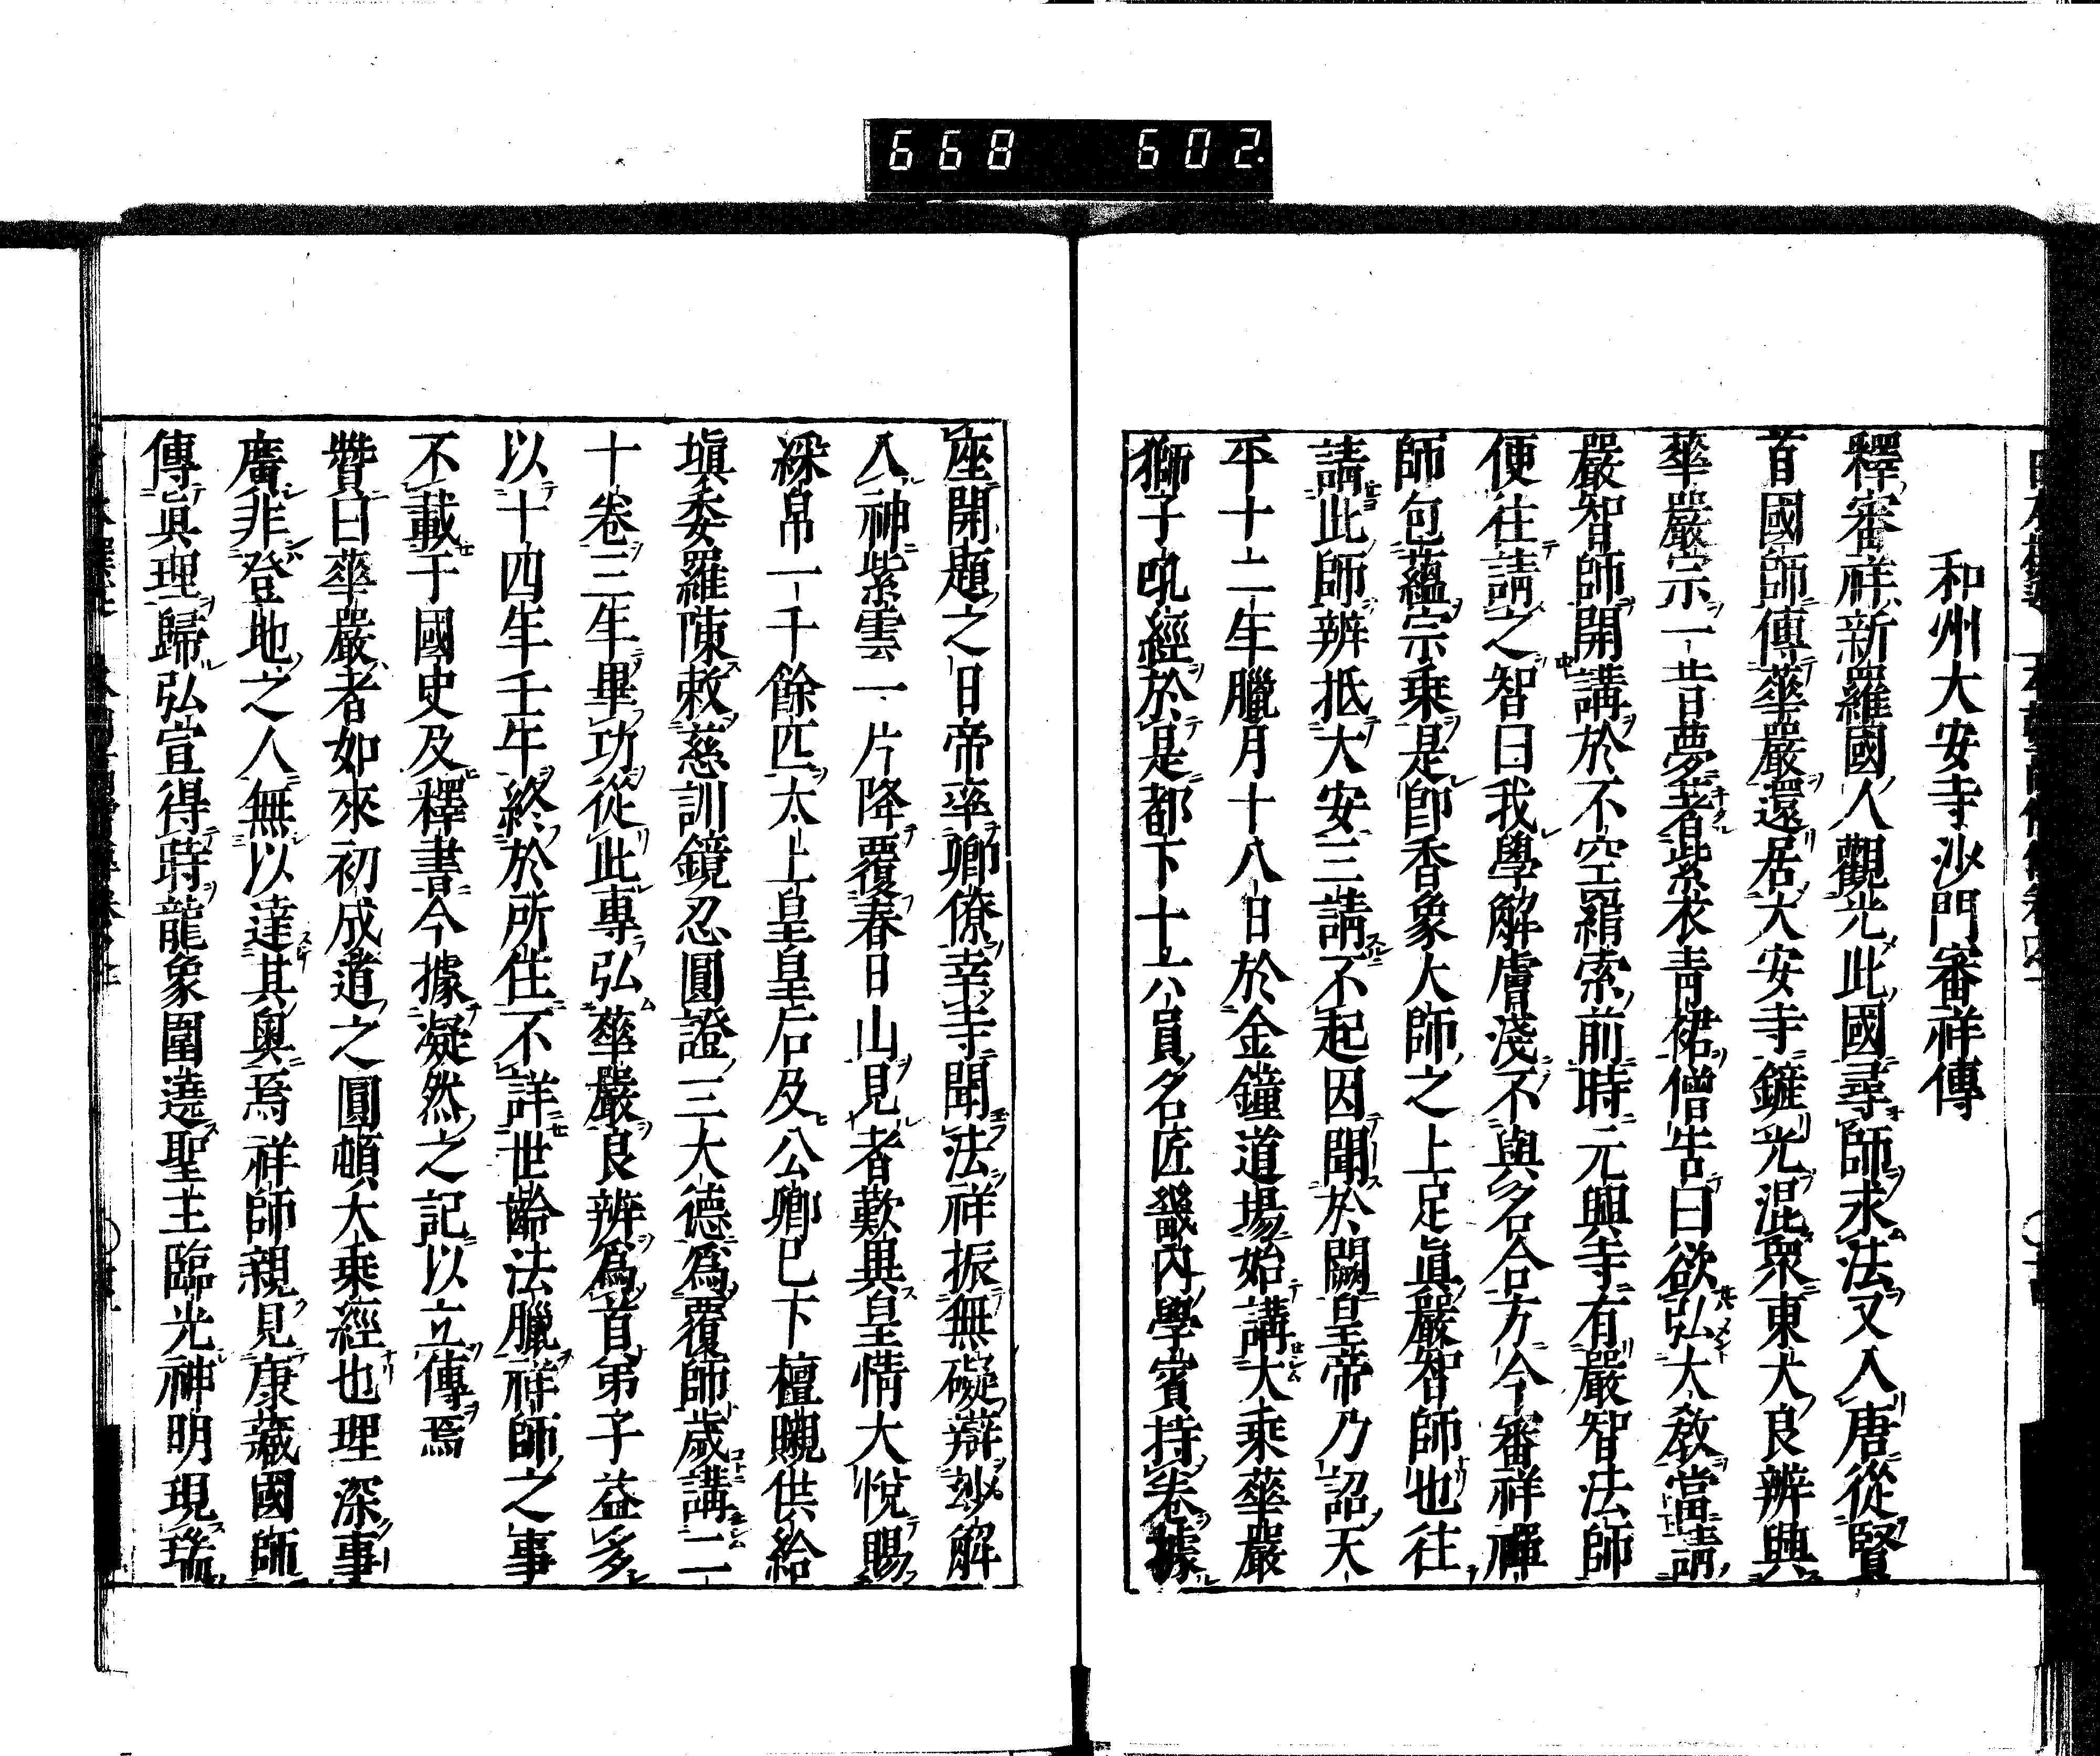 668 602.
和州大安寺沙門審祥傳
釋審祥新羅國人觀光此國尋師求法又入唐從賢
首國師傳華嚴還居大安寺鏟光混衆東大良辨興
華嚴宗一昔夢著紫衣青裙僧告曰欲弘大敎當請
嚴智師開講於不空羂索前時元興寺有嚴智法師
便往請之智曰我學解膚淺不與名合方今審祥禪
師包蘊宗乘是卽香象大師之上足眞嚴智師也往
請此師辨抵大安三請不起因聞於闕皇帝乃詔天
平十二年臘月十八日於金鐘道場始講大乘華嚴
獅子吼經於是都下十六員名匠畿內學賓持卷據
座開題之日帝率卿僚幸寺聞法祥振無礙辯玅解
入神紫雲一片降覆春日山見者歎異皇情大悅賜
綵帛一千餘匹太上皇皇后及公卿已下檀嚫供給
塡委羅陳敕慈訓鏡忍圓證三大德爲覆師歲講二
十卷三年畢功從此專弘華嚴良辨爲首弟子益多
以十四年壬午終於所住不詳世齡法臘祥師之事
不載于國史及釋書今據凝然之記以立傳焉
贊曰華嚴者如來初成道之圓頓大乘經也理深事
廣非登地之人無以達其奧焉祥師親見康藏國師
傳眞理歸弘宣得時龍象圍遶聖主臨光神明現瑞